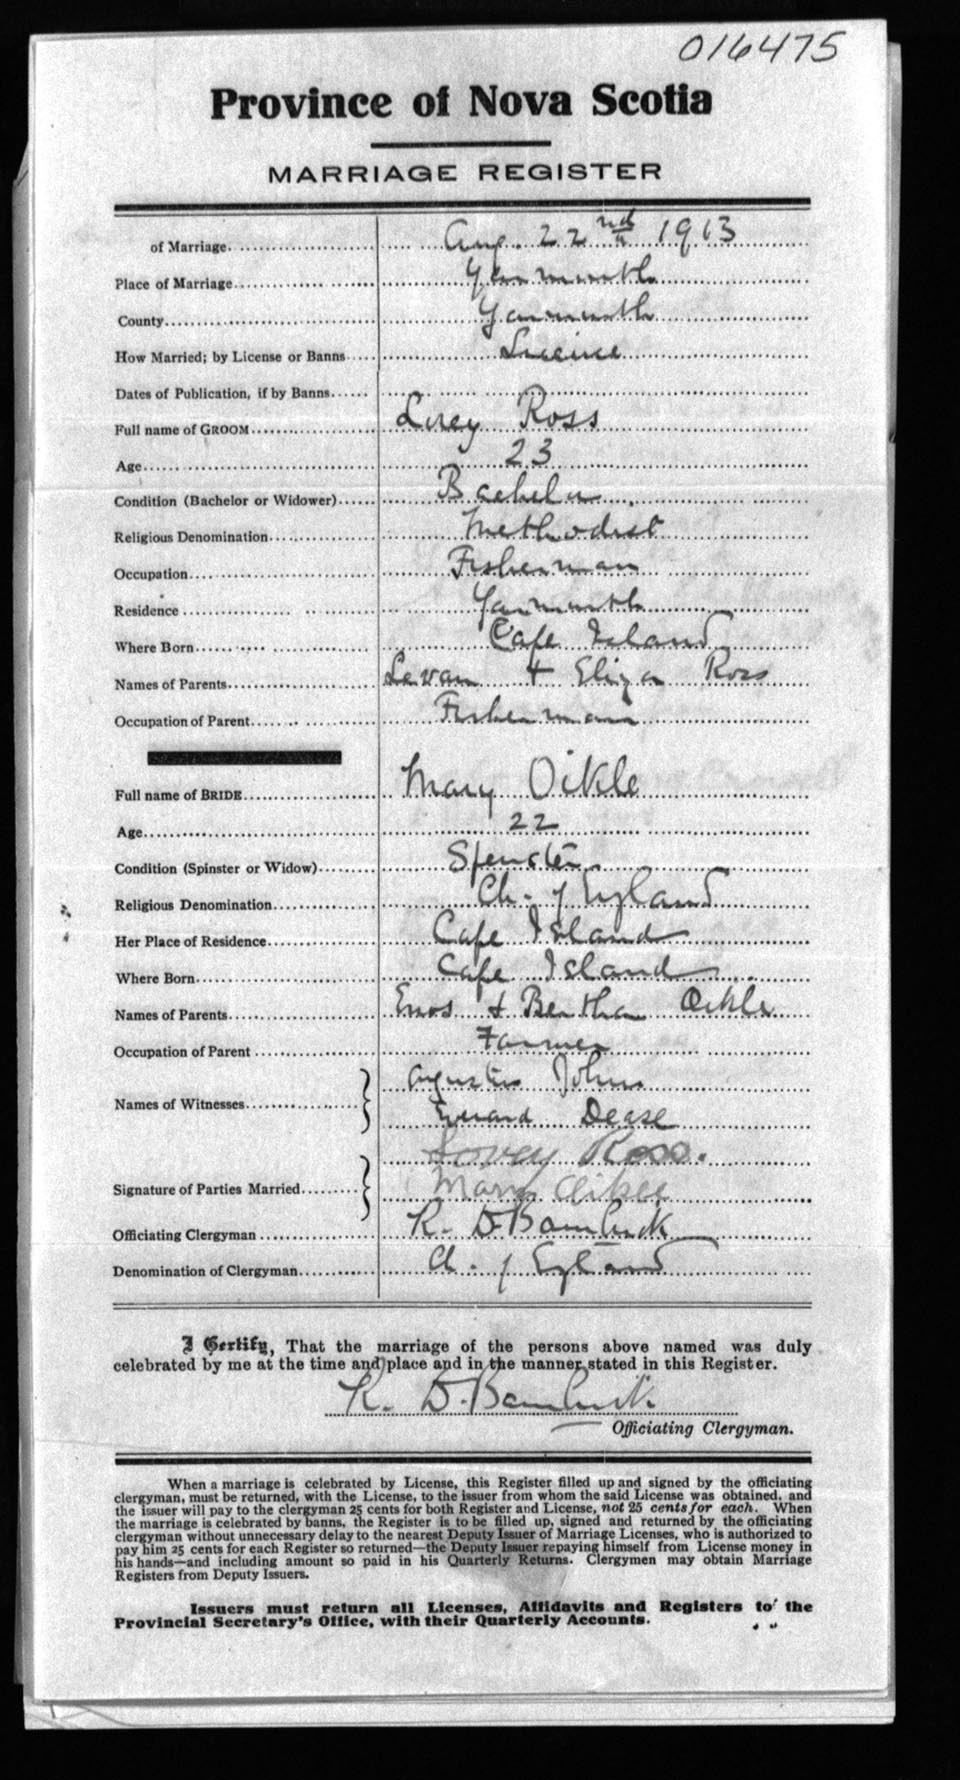 016475
Province of Nova Scotia
MARRIAGE REGISTER
of Marriage Aug. 22nd 1913
Place of Marriage Yarmouth
County Yarmouth
How Married; by License or Banns License
Dates of Publication, if by Banns
Full name of GROOM Ross
Age 23
Condition (Bachelor or Widower) Bachelor
Religious Denomination Methodist
Occupation Fisherman
Residence Yarmouth
Where Born Cape Island
Names of Parents Levan + Eliza Ross
Occupation of Parent Fisherman
Full name of BRIDE Mary Oikle
Age 22
Condition (Spinster or Widow) Spinster
Religious Denomination Ch. of England
Her Place of Residence Cape Island
Where Born Cape Island
Names of Parents Enos + Bertha Oikle
Occupation of Parent Farmer
Names of Witnesses Agustus Johns
Edward Dease
Lovey Ross.
Signature of Parties Married Mary Oikle
Officiating Clergyman R. D. Bambrick
Denomination of Clergyman Ch. of England
I Certify, That the marriage of the persons above named was duly
celebrated by me at the time and place and in the manner stated in this Register.
R. D. Bambrick
Officiating Clergyman.
When a marriage is celebrated by License, this Register filled up and signed by the officiating
clergyman, must be returned, with the License, to the issuer from whom the said License was obtained, and
the issuer will pay to the clergyman 25 cents for both Register and License, not 25 cents for each. When
the marriage is celebrated by banns, the Register is to be filled up, signed and returned by the officiating
clergyman without unnecessary delay to the nearest Deputy Issuer of Marriage Licenses, who is authorized to
pay him 25 cents for each Register so returned—the Deputy Issuer repaying himself from License money in
his hands—and including amount so paid in his Quarterly Returns. Clergymen may obtain Marriage
Registers from Deputy Issuers.
Issuers must return all Licenses, Affidavits and Registers to the
Provincial Secretary's Office, with their Quarterly Accounts.